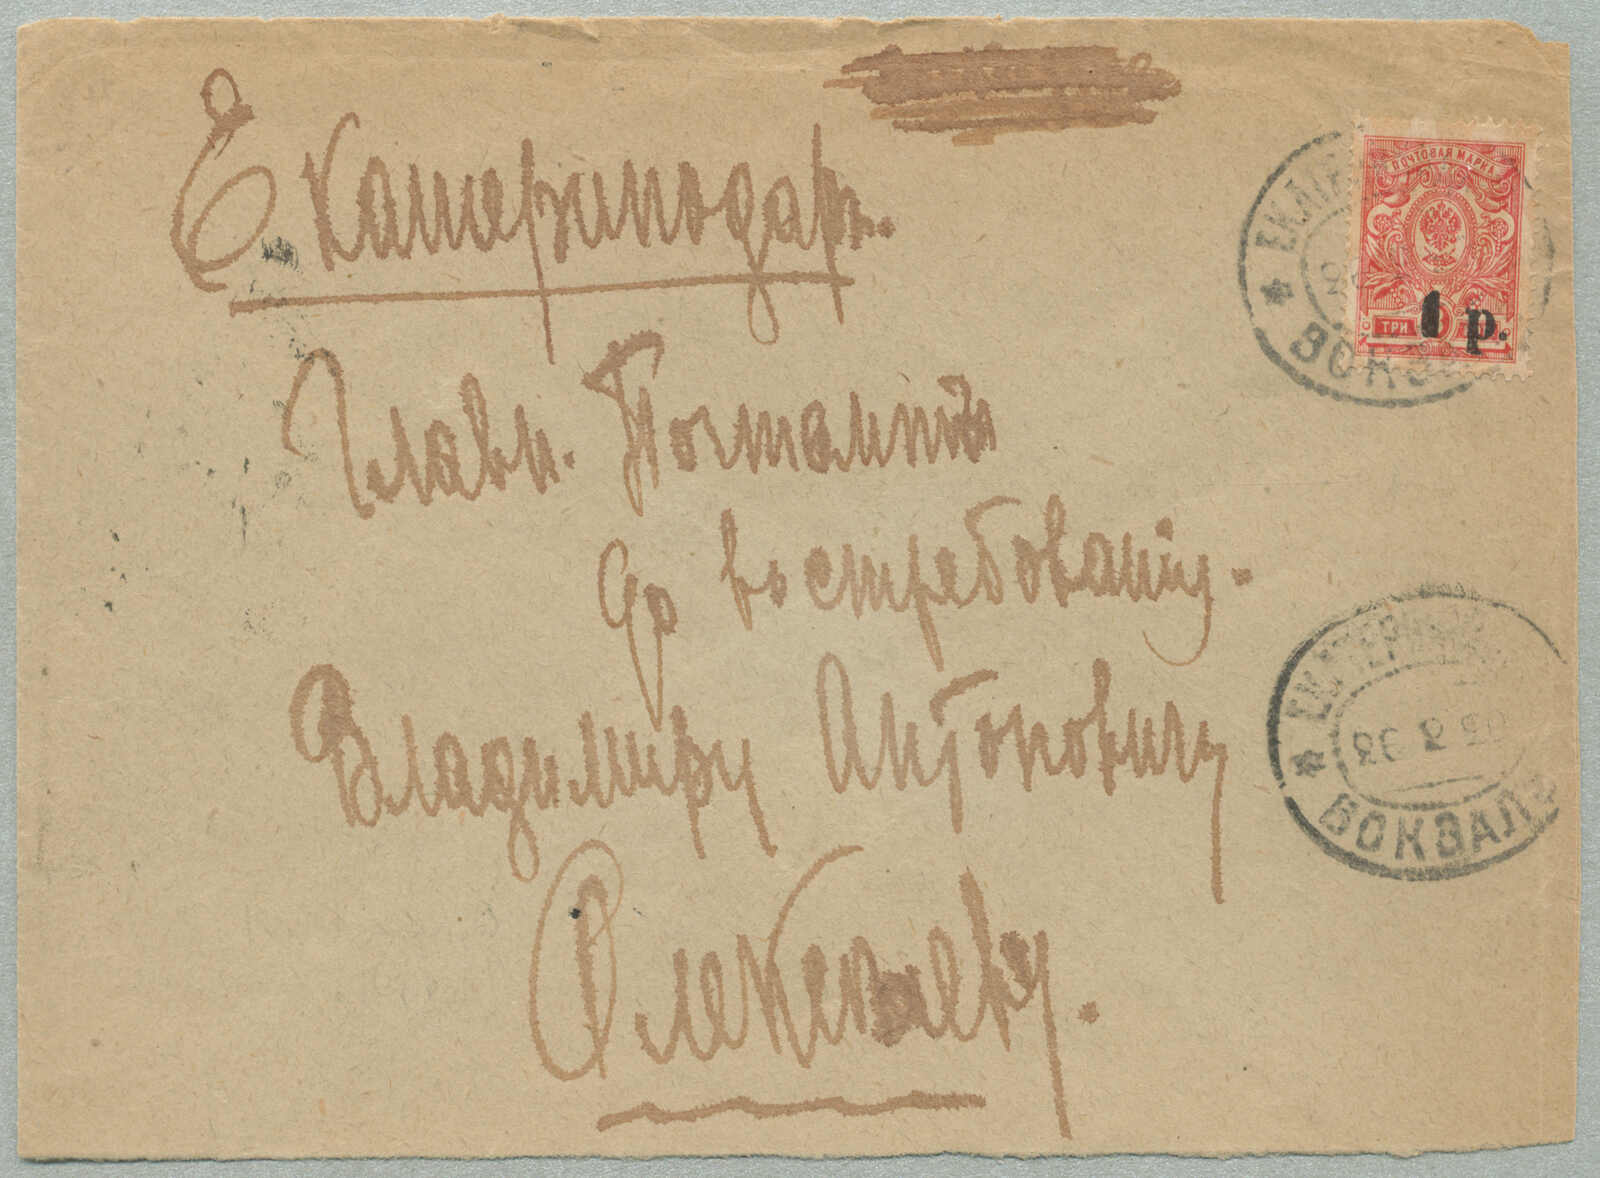 Екатеринодаръ.
Главн. Почтамтъ
до востребованія.
Владимиру Антоновичу
Алексѣеву.
ПОЧТОВАЯ МАРКА
ТРИ
1 р.
ВОКЗ
ЕКАТЕРИНОД
26 2 20
ВОКЗАЛЪ